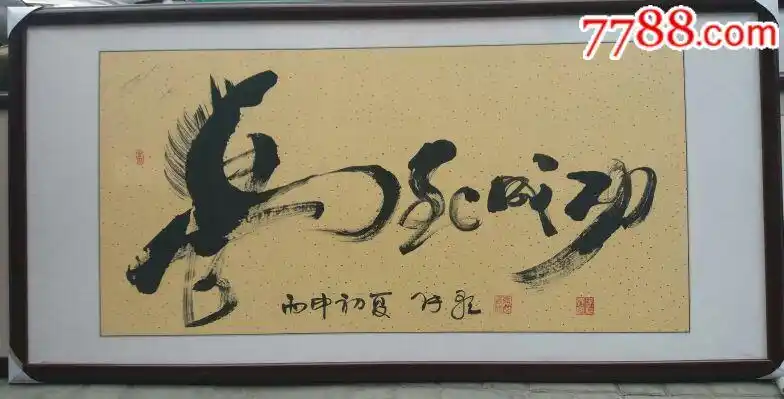 7788.com
马到成功
丙申初夏